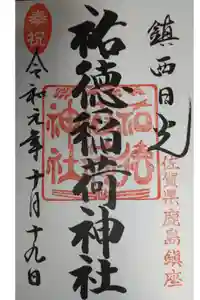 鎮西日光
佐賀県鹿島鎮座
祐徳稲荷神社
祐徳
神社
奉祝
令和元年十月十九日